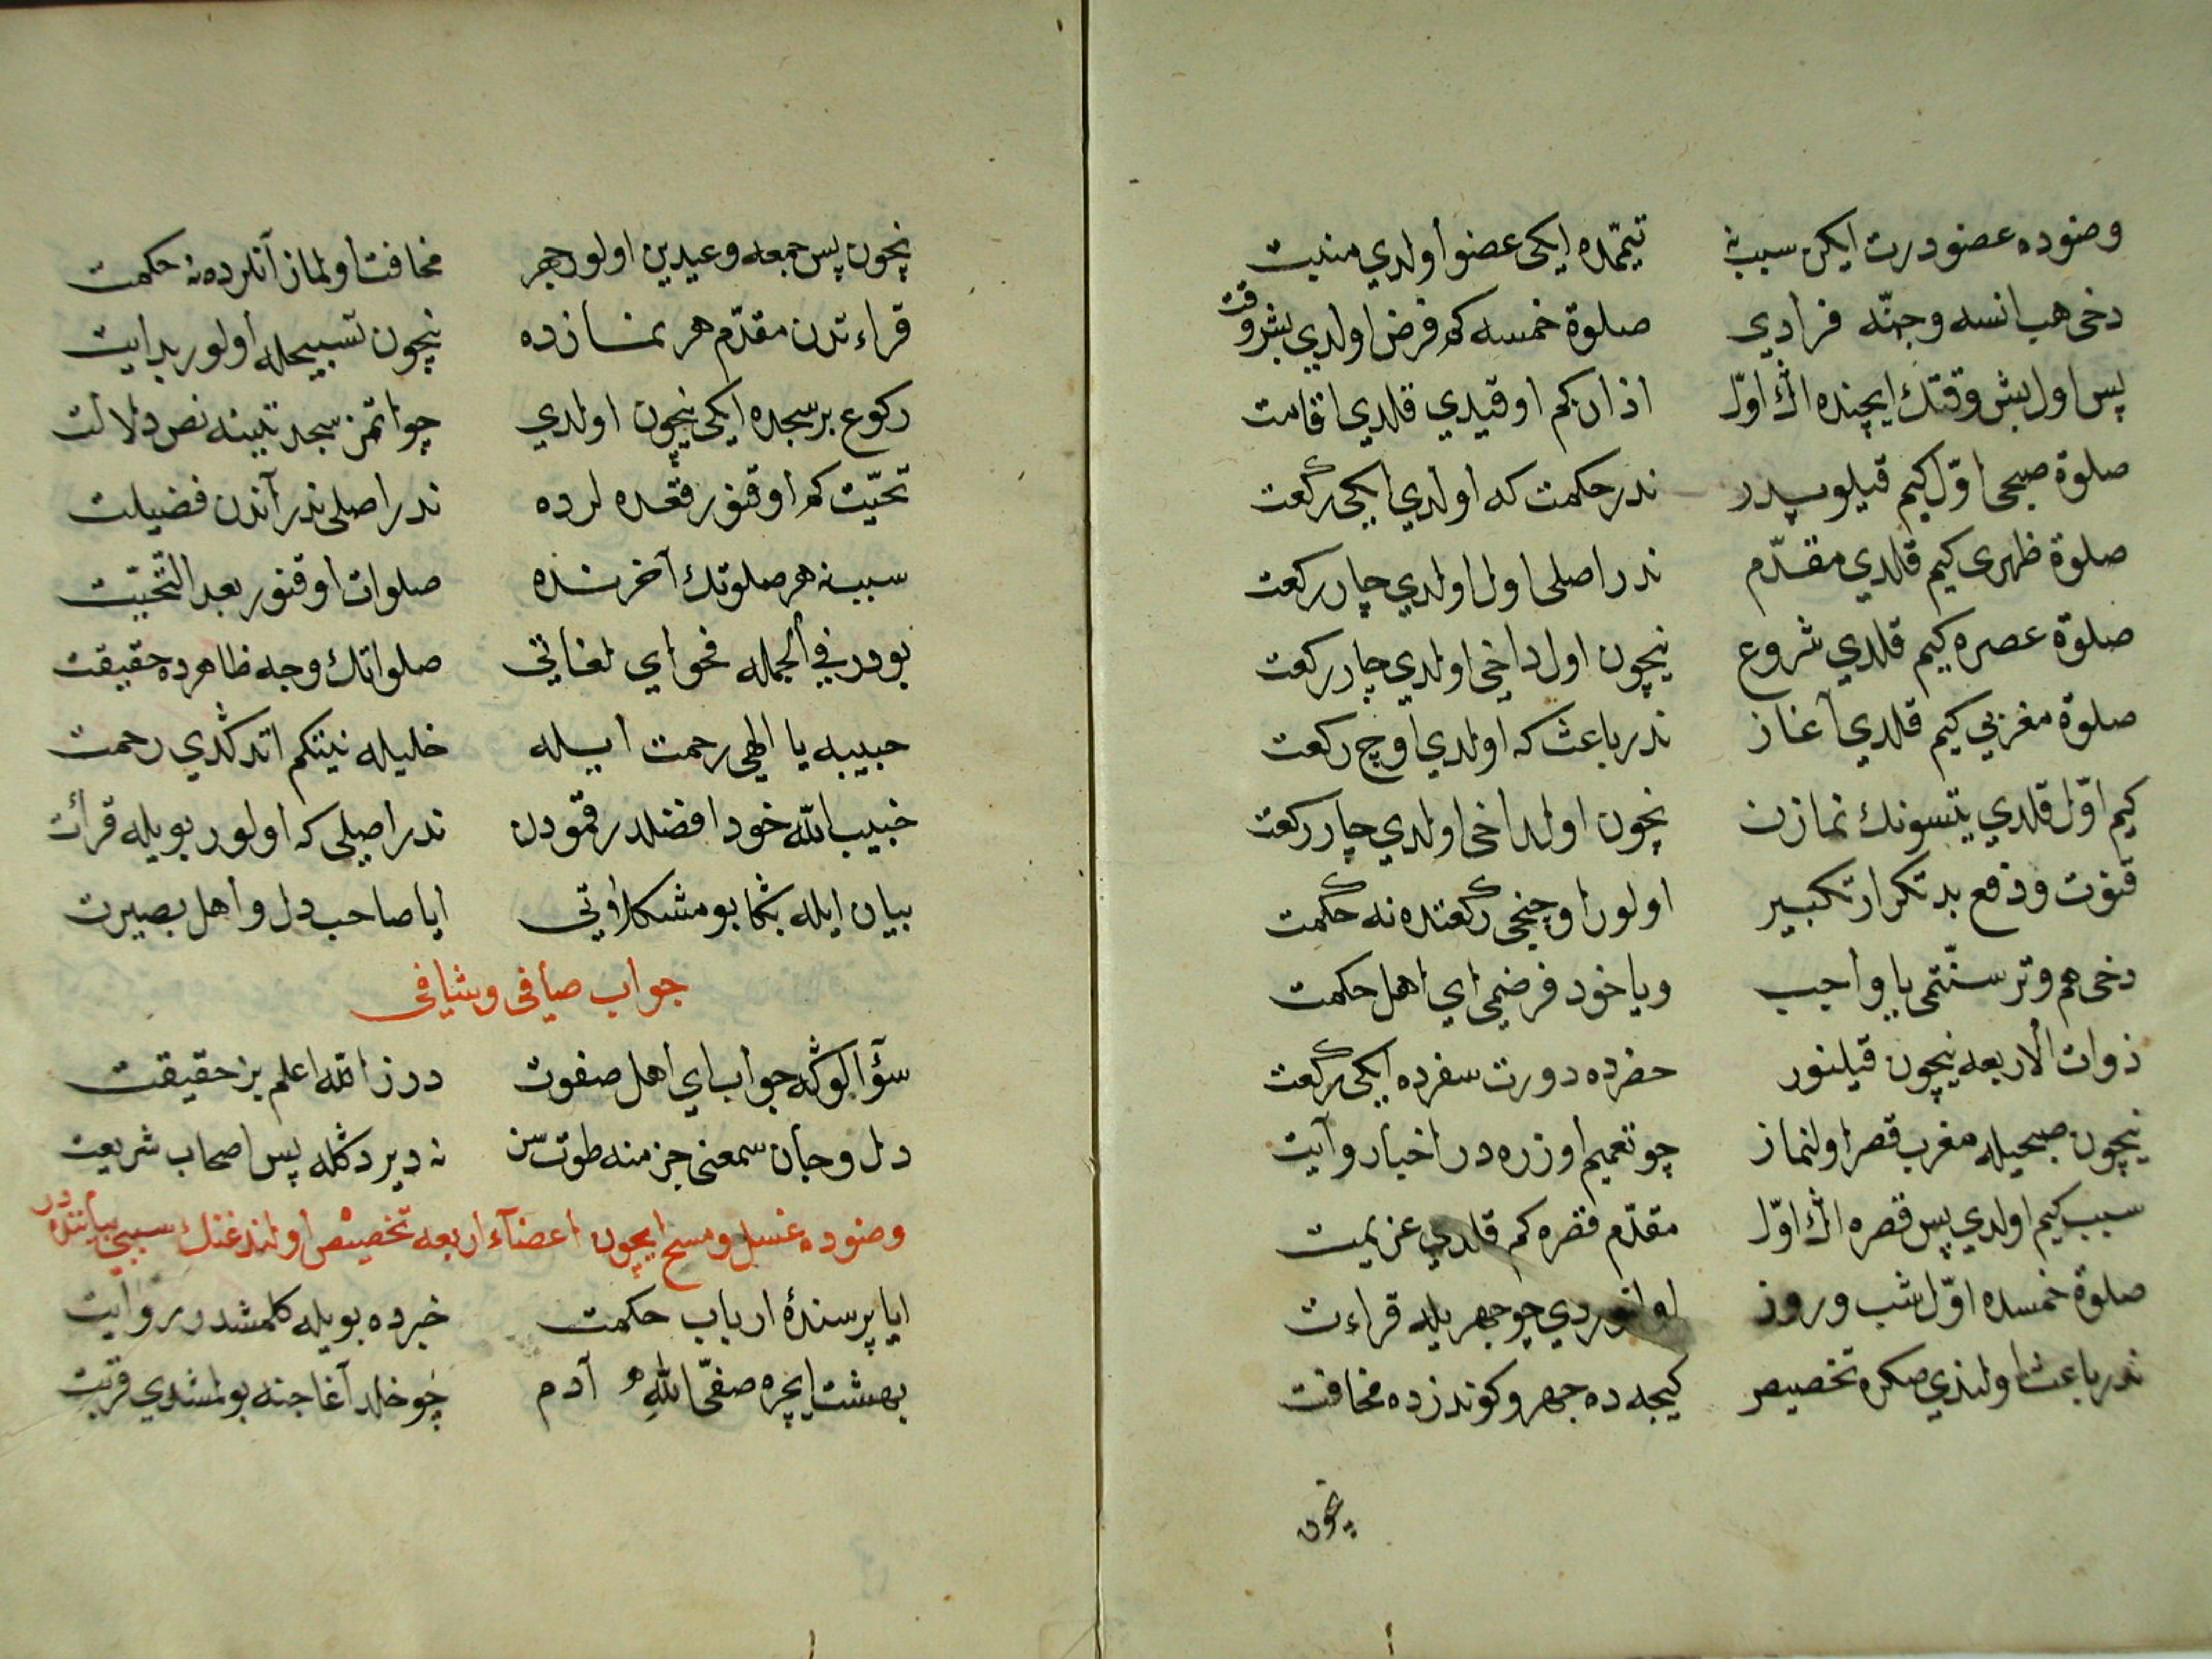 وضوده عضو درت ايكن سبب نه تيممده ايكى عضو اولدي منيت
دخى هب انسه و جنّه فرادي صلوة خمسه كه فرض اولدي بش وقت
پس اول بش وقتك ايچنده اڭ اوّل اذان كم اوقيدي قلدي اقامت
صلوة صبحى اوّل كيم قيلوبدر ندر حكمت كه اولدي ايكى ركعت
صلوة ظهرى كيم قلدي مقدّم ندر اصلى اول اولدي چار ركعت
صلوة عصره كيم قلدي شروع نيچون اول داخى اولدي چار ركعت
صلوة مغربي كيم قلدي آغاز ندر باعث كه اولدي اوچ ركعت
كيم اوّل قلدي يتسونك نمازن نچون اول داخى اولدي چار ركعت
قنوت و رفع يد تكرار تكبير اولور اوچنجى ركعتده نه حكمت
دخى هم وتر سنّتمى يا واجب ويا خود فرضمى اي اهل حكمت
ذوات الاربعه نيچون قيلنور حضرده دورت سفرده ايكى ركعت
نيچون صبحيله مغرب قصر اولنماز چو تعميم اوزره در اخبار و آيت
سبب كيم اولدي پس قصره اڭ اوّل مقدّم قصره كم قلدي عزيمت
صلوة خمسده اوّل شب و روز اولنوردي چو جهريله قراءت
ندر باعث اولندي صكره تخصيص كيجه ده جهر و كوندزده مخافت
نچون
نچون پس جمعه و عيدين اولور جهر مخافت اولماز آنلرده نه حكمت
قراءتدن مقدّم هر نمازده نيچون تسبيحله اولور بدايت
ركوع بر سجده ايكى نيچون اولدي چو اتمز سجده تثنيه نص دلالت
تحيّت كه اوقنور قعده لرده ندر اصلى ندر آندن فضيلت
سبب نه هر صلوتك آخرنده صلوات اوقنور بعد التّحيّت
بودر في الجمله فحواي لغاتي صلواتك وجه ظاهرده حقيقت
حبيبه يا الهى رحمت ايله خليله نيتكم اتدكڭدي رحمت
حبيب الله خود افضلدر قمودن ندر اصلى كه اولور بويله قرائت
بيان ايله بڭا بو مشكلاتي ايا صاحب دل و اهل بصيرت
جواب صافى و شافى
سؤالوڭه جواب اي اهل صفوت درز الله اعلم بز حقيقت
دل و جان سمعنى جزمنه طوت سن نه دير دڭله پس اصحاب شريعت
وضوده غسل و مسح ايچون اعضاء اربعه تخصيص اولندغنك سببى بياننده در
ايا پرسندهٔ ارباب حكمت خبرده بويله كلمشدر روايت
بهشت ايچره صفىّ الله آدم چو خلد آغاجنه بولمشدي قربت